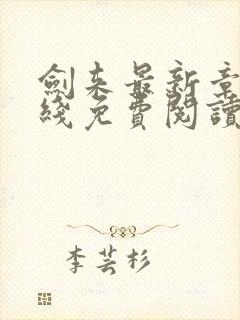 劍来最新章
綫免費閱讀
李芸杉